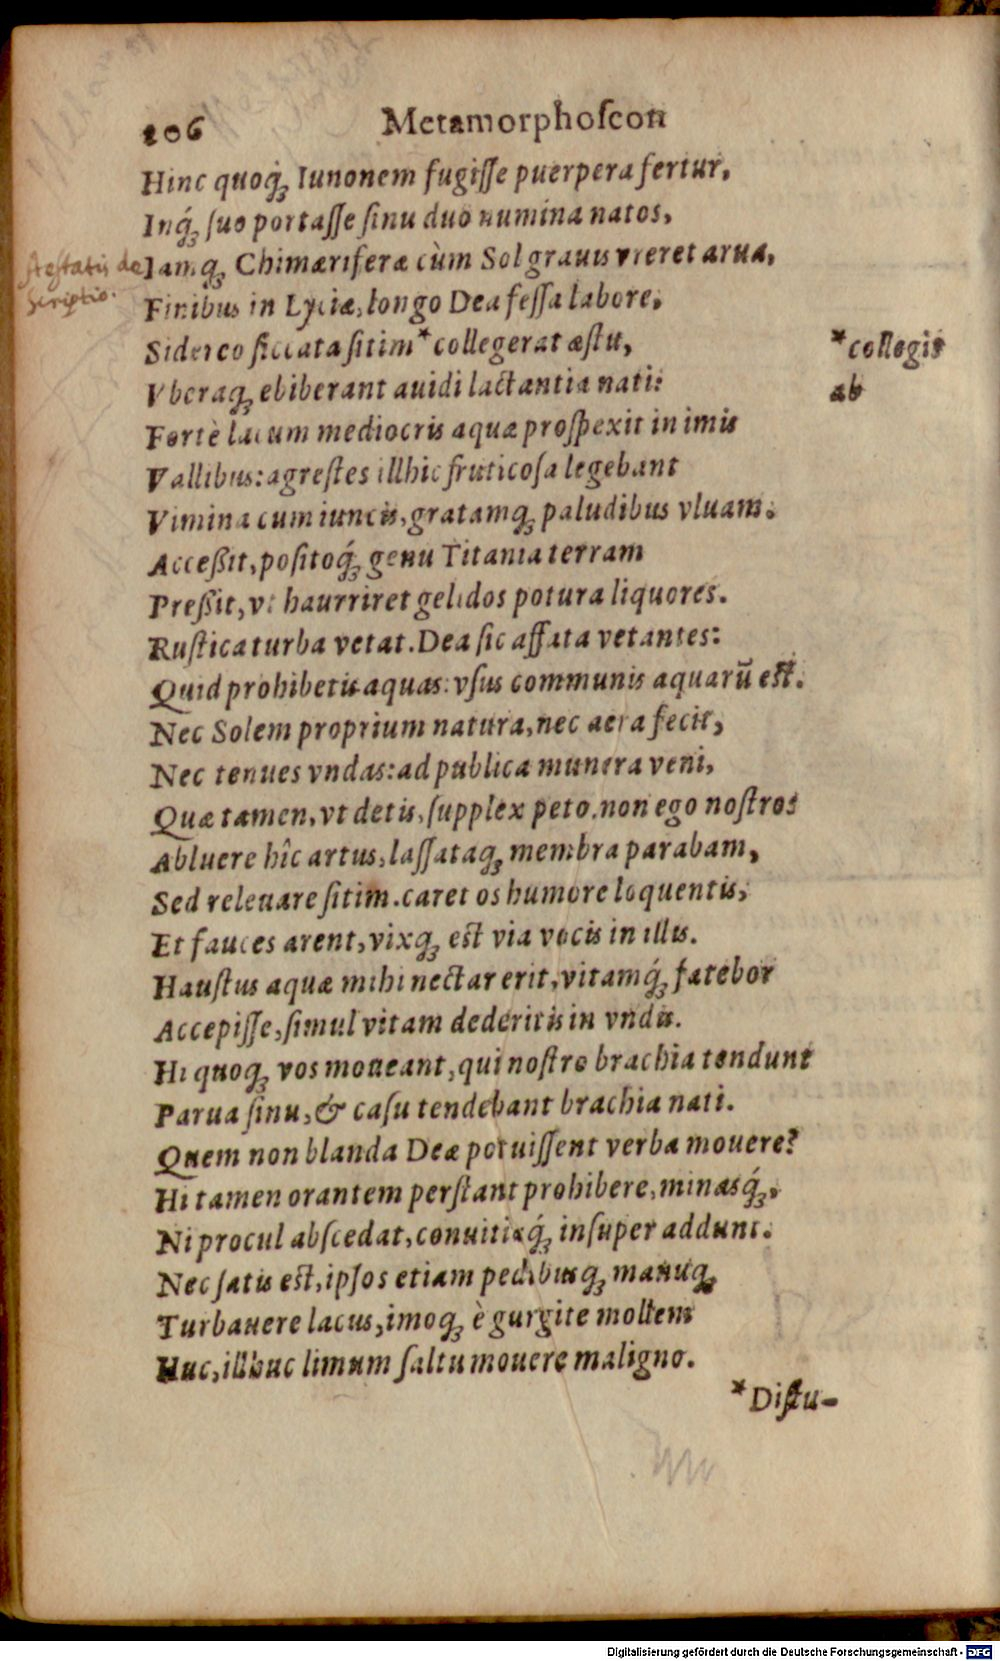 206 Metamorphoſeon
Hinc quoq́ꝫ Iunonem fugiſſe puerpera fertur,
Inq́ꝫ ſuo portaſſe ſinu duo numina natos,
Iamqꝫ Chimæriferæ cùm Sol grauis vreret arua,
Finibus in Lyciæ, longo Dea feſſa labore,
Sidereo ſiccata ſitim * collegerat æſtu,
Vberaqꝫ ebiberant auidi lactantia nati:
Fortè lacum mediocris aquæ proſpexit in imis
Vallibus: agreſtes illhic fruticoſa legebant
Vimina cum iuncis, gratamqꝫ paludibus vluam.
Acceßit, poſitoq́ꝫ genu Titania terram
Preßit, vt haurriret gelidos potura liquores.
Ruſtica turba vetat. Dea ſic affata vetantes:
Quid prohibetis aquas: vſus communis aquarū eſt.
Nec Solem proprium natura, nec aera fecit,
Nec tenues vndas: ad publica munera veni,
Quæ tamen, vt detis, ſupplex peto. non ego noſtros
Abluere hîc artus, laſſataqꝫ membra parabam,
Sed releuare ſitim. caret os humore loquentis,
Et fauces arent, vixqꝫ eſt via vocis in illis.
Hauſtus aquæ mihi nectar erit, vitamq́ꝫ fatebor
Accepiſſe, ſimul vitam dederitis in vndis.
Hi quoqꝫ vos moueant, qui noſtro brachia tendunt
Parua ſinu, & caſu tendebant brachia nati.
Quem non blanda Deæ potuiſſent verba mouere?
Hi tamen orantem perſtant prohibere, minasq́ꝫ,
Ni procul abſcedat, conuitiaq́ꝫ inſuper addunt.
Nec ſatis eſt, ipſos etiam pedibusqꝫ manuqꝫ
Turbauere lacus, imoqꝫ è gurgite mollem
Huc, illhuc limum ſaltu mouere maligno.
* Diſtu-
* collegit
ab
Aeſtatis de
ſcriptio.
Digitalisierung gefördert durch die Deutsche Forschungsgemeinschaft - DFG